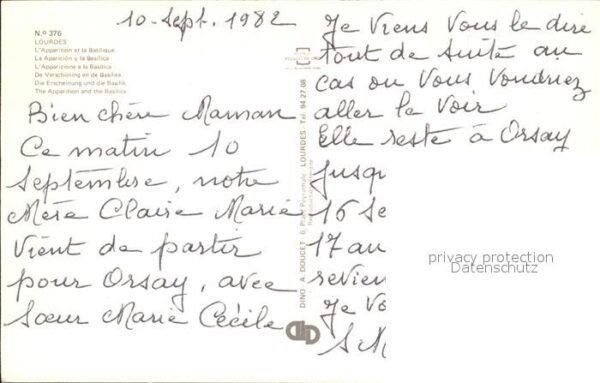 10-Sept. 1982
N.º 376
LOURDES
L'Apparition et la Basilique
La Aparición y la Basílica
L'Apparizione e la Basilica
De Verschining en de Basiliek
Die Erscheinung und die Basilik
The Apparition and the Basilica
Bien chère Maman
Ce matin 10
Septembre, notre
Mère Claire Marie
vient de partir
pour Orsay, avec
Sœur Marie Cécile
DINO A. DOUCET 6, Place Peyramale - LOURDES - Tél. 94.27.08
Je viens vous le dire
tout de suite au
cas ou vous voudriez
aller la voir
Elle reste à Orsay
jusqu
16 Se
17 au
revien
Je vo
S. M
privacy protection
Datenschutz